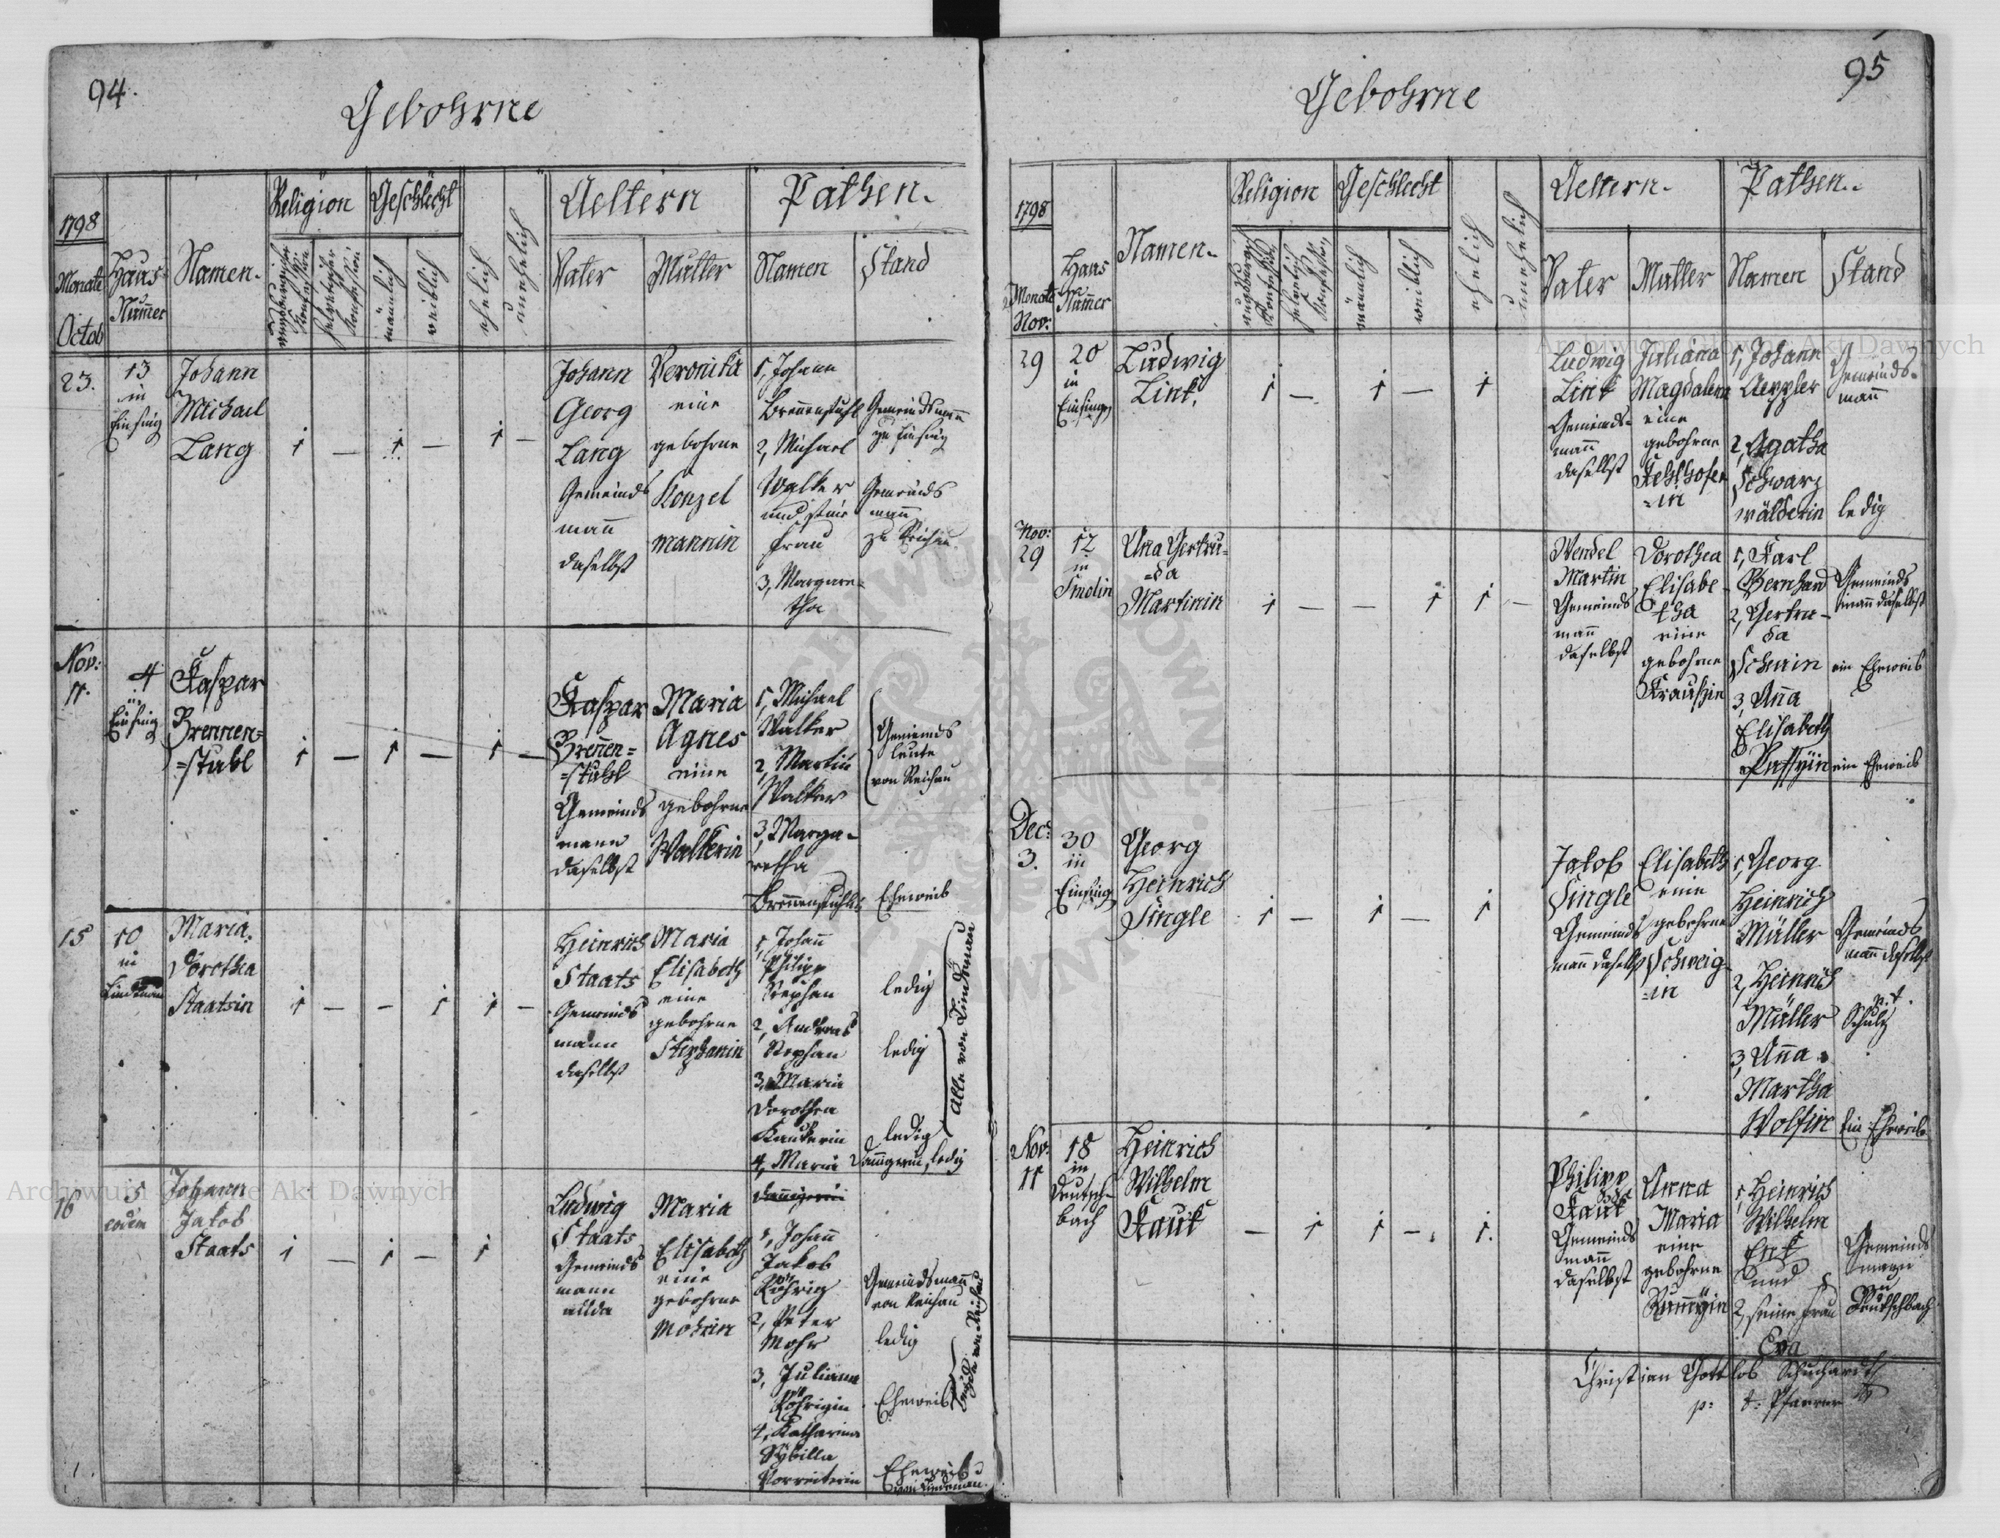 94.
Gebohrne
1798
Monate
Octob
Haus
Nummer
Namen.
Religion
augsburgischer Konfession
helvetischer Konfession
Geschlecht
männlich
weiblich
ehelich
unehelich
Aeltern
Vater
Mutter
Pathen.
Namen
Stand
23.
13
in
Einsing
Johann
Michael
Lang
1 — 1 — 1 —
Johann
Georg
Lang
Gemeinds
mann
daselbst
Veronika
eine
gebohrne
Konzel
mannin
1, Johann
Brennenstuhl
2, Michael
Walker
und seine
Frau
3, Margare-
tha
Gemeindsmann
zu Einsing
Gemeinds
mann
zu Reichau
Nov:
11.
4
in
Einsing
Kaspar
Brennen=
=stuhl
1 — 1 — 1 —
Kaspar
Brenen=
=stuhl
Gemeinds
mann
daselbst
Maria
Agnes
eine
gebohrne
Walkerin
1, Michael
Walker
2, Martin
Walker
3, Marga-
retha
Brennenstuhl
Gemeinds
leute
von Reichau
Eheweib
15
10
in
Lindenau
Maria
Dorothea
Staatsin
1 — — 1 1 —
Heinrich
Staats
Gemeinds
mann
daselbst
Maria
Elisabeth
eine
gebohrne
Stephanin
1, Johann
Philipp
Stephan
2, Andreas
Stephan
3, Maria
Dorothea
Kauterin
4, Maria
ledig
ledig
ledig
ledig
alle von Lindenau
16
5
eodem
Johann
Jakob
Staats
1 — 1 — 1
Ludwig
Staats
Gemeinds
mann
allda
Maria
Elisabeth
eine
gebohrne
Mohrin
1, Johann
Jakob
Röhrig
2, Peter
Mohr
3, Juliana
Röhrigin
4, Katharina
Sybilla
Vorreiterin
Gemeindsmann
von Reichau
ledig
Eheweib
Eheweib
von Lindenau.
95
Gebohrne
1798
Monate
Nov:
Haus
Nummer
Namen.
Religion
augsburg Konfession
helvetisch Konfession
Geschlecht
männlich
weiblich
ehelich
unehelich
Aeltern.
Vater
Mutter
Pathen.
Namen
Stand
29
20
in
Einsing
Ludwig
Link,
1 — 1 — 1
Ludwig
Link
Gemeinds=
mann
daselbst
Juliana
Magdalena
eine
gebohrne
=in
1, Johann
Aeppler
2, Agatha
Schwarz
wälderin
Gemeinds=
mann
ledig
Nov:
29
12
in
Smolin
Ana Gertru=
=da
Martinin
1 — — 1 1 —
Wendel
Martin
Gemeinds
mann
daselbst
Dorothea
Elisabe
tha
eine
gebohrne
Kraußin
1, Karl
Bernhard
2, Gertru-
da
Schwin
3, Anna
Elisabeth
Gemeinds
mann daselbst
ein Eheweib
ein Eheweib
Dec:
3.
30
in
Einsing
Georg
Heinrich
Single
1 — 1 — 1
Jakob
Single
Gemeinds
mann daselbst
Elisabeth
eine
gebohrne
Schweig-
=in
1, Georg
Heinrich
Müller
2, Heinrich
Müller
3, Anna
Martha
Wolfin
Gemeinds
mann daselbst
p. t.
Schulz
Ein Eheweib
Nov:
11
18
in
Deutsch-
bach
Heinrich
Wilhelm
Fauk
— 1 1 — 1.
Philipp
Fauk
Gemeinds
mann
daselbst
Anna
Maria
eine
gebohrne
1, Heinrich
Wilhelm
Enk
und
2, seine Frau
Eva
Gemeinds
mann
Deutschbach
Christian Gottlob Schuchardt
p: t: Pfarrer
Archiwum Główne Akt Dawnych
Archiwum Główne Akt Dawnych